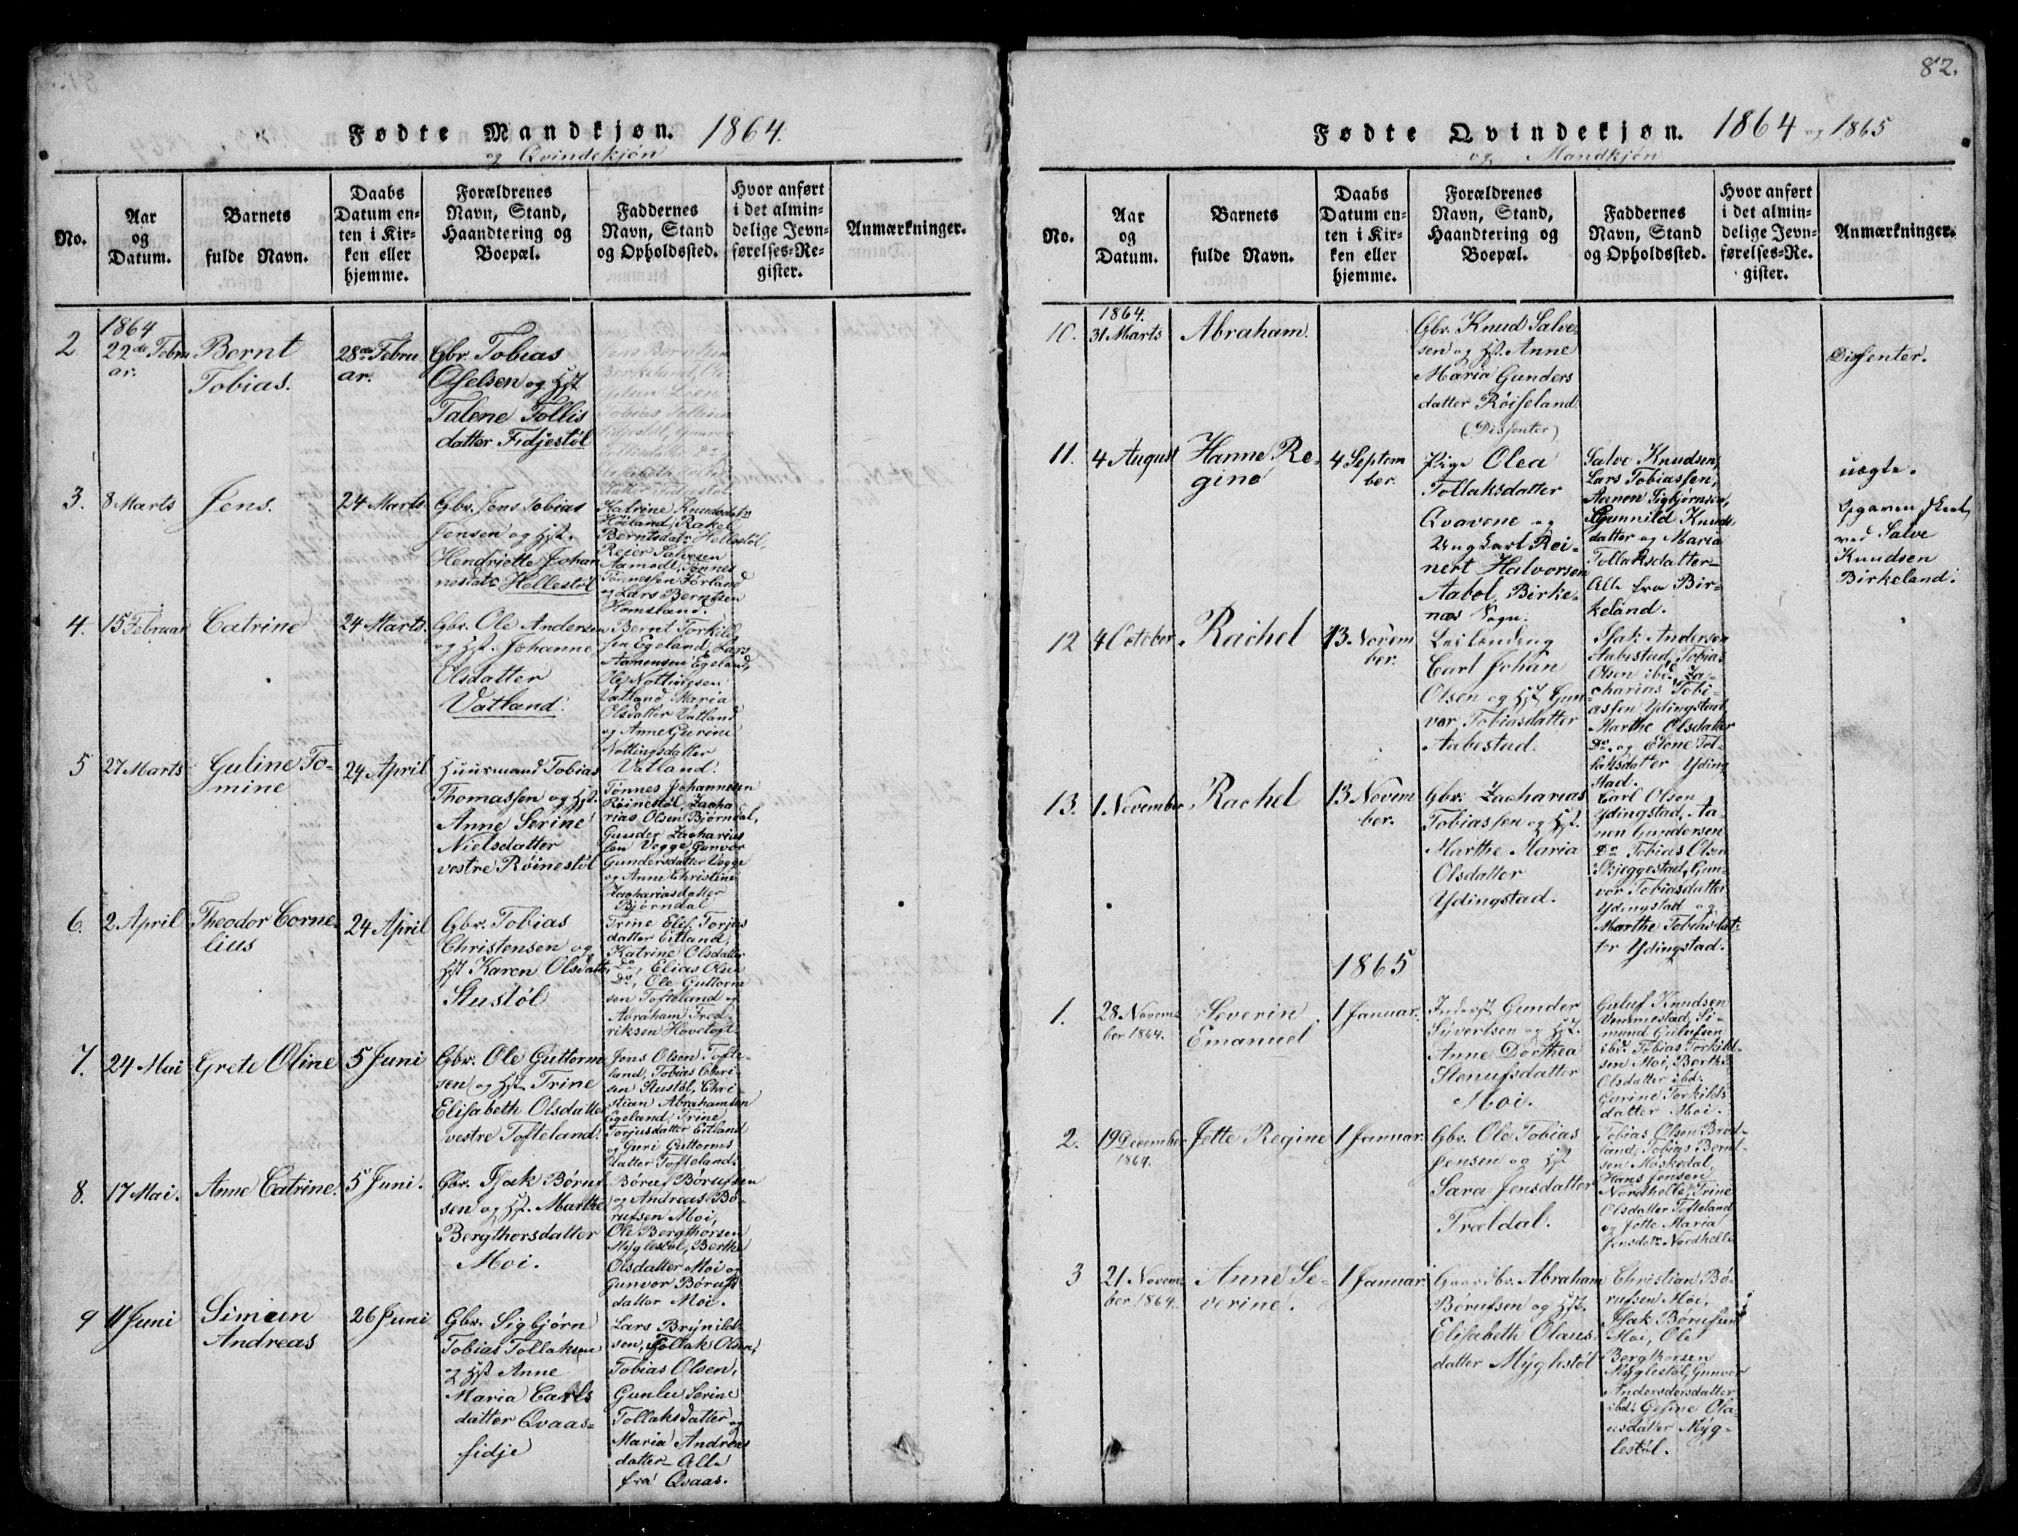 82.
Fødte Mandkjøn. 1864.
og Qvindekjön
No.
Aar og Datum.
Barnets fulde Navn.
Daabs Datum enten i Kirken eller hjemme.
Forældrenes Navn, Stand, Haandtering og Boepæl.
Faddernes Navn, Stand og Opholdssted.
Hvor anført i det almindelige Jevnførelses-Register.
Anmærkninger.
2
1864
22de Febru
ar.
Bernt
Tobias.
28de Febru
ar.
Gbr. Tobias
Oselsen og Hst
Talene Tollis
datter Fidjestöl
3.
8 Marts
Jens.
24 Marts
Gbr. Jens Tobias
Jensen og Hst.
Hendriette Johan
nesdatr Hellestöl
Katrine Knudsdatr
Höiland, Rakel
Berntsdatr Hellestöl,
Reier Salvesen
Aamodt, Tönnes
Tönnessen Förland
og Lars Berntsen
Homsland.
4.
15 Februar
Catrine
24 Marts.
Gbr. Ole Andersen
og Hst. Johanne
Olsdatter
Vatland.
Bernt Torkild
sen Egeland, Lars
Aamensen Egeland,
Ole Nottingsen
Vatland Maria
Olsdatter Vatland
og Anne Gurine
Nottingsdatter
Vatland.
5
27 Marts
Guline To-
mine
24 April
Huusmand Tobias
Thomassen og Hst.
Anne Serine
Nielsdatter
vestre Röinestöl
Tönnes Johannesen
Röinestöl, Zacha
rias Olsen Björndal,
Gunder Zacharias
sen Vegge, Gunvor
Gundersdatter Vegge
og Anne Christine
Zachariasdatter
Björndal
6.
2 April
Theodor Corne
lius
24 April
Gbr. Tobias
Christensen og
Hst Karen Olsdatr
Stustöl
Trine Elis. Torjus
datter Eitland,
Katrine Olsdatter
Do, Elias Olsen
Do, Ole Guttorm
sen Tofteland og
Abraham Fred-
riksen Hovetogt
7.
24 Mai
Grete Oline
5 Juni
Gbr. Ole Guttorm
sen og Hst. Trine
Elisabeth Olsdatter
vestre Tofteland.
Jens Olsen Tofte-
land, Tobias Chri
sen Stustöl, Chri-
stian Abrahamsen
Egeland, Trine
Torjusdatter Eitland
og Guri Guttorms
datter Tofteland.
8.
17 Mai.
Anne Catrine.
5 Juni.
Gbr. Isak Börud
sen og Hst. Marthe
Bergthorsdatter
Moi.
Böruf Börufsen
og Andreas Bö-
rufsen Moi,
Ole Bergthorsen
Myglestöl, Berthe
Olsdatter Moi og
Gunvor Börufs
datter Moi.
9
11 Juni
Simeun
Andreas
26 Juni
Gbr. Sigbjörn
Tobias Tollaksen
og Hst Anne
Maria Carls
datter Qvaas-
fidje
Lars Brynild-
sen, Tollak Olsen,
Tobias Olsen,
Gunlu Serine
Tollaksdatter og
Maria Andreas
datter - Alle
fra Qvaas.
Fødte Qvindekjøn. 1864 og 1865
og Mandkjön
No.
Aar og Datum.
Barnets fulde Navn.
Daabs Datum enten i Kirken eller hjemme.
Forældrenes Navn, Stand, Haandtering og Boepæl.
Faddernes Navn, Stand og Opholdssted.
Hvor anført i det almindelige Jevnførelses-Register.
Anmærkninger.
10.
1864.
31 Marts
Abraham.
Gbr. Knud Salve-
sen og Hst. Anne
Maria Gunders
datter Röiseland.
(Dissenter)
Dissenter.
11.
4 August
Hanne Re-
gine
4 Septem
ber.
Pige Olea
Tollaksdatter
Qvavene og
Ungkarl Rei-
nert Halvorsen
Aabol, Birke-
næs Sogn.
Salve Knudsen,
Lars Tobiassen,
Aanon Sigbjörnsen,
Gunnild Knuds-
datter og Maria
Tollaksdatter -
Alle fra Bir-
keland.
uægte.
Opgaven skeet
ved Salve
Knudsen
Birkeland.
12
4 October
Rachel
13 Novem
ber.
Leilænding
Carl Johan
Olsen og Hst Gun
vor Tobiasdatter
Aabestad.
Isak Andersen
Aabestad, Tobias
Olsen ibid, Za-
charias Tobi-
assen Ydingstad,
Marthe Olsdatter
Do. og Elene Tol-
laksdatter Yding
stad.
13.
1 November
Rachel
13 Novem
ber.
Gbr. Zacharias
Tobiassen og Hst.
Marthe Maria
Olsdatter
Ydingstad.
Carl Olsen
Ydingstad, Aa-
non Gundersen
Do Tobias Olsen
Skjeggestad, Gun-
vor Tobiasdatter
Ydingstad og
Marthe Tobiasdat-
ter Ydingstad.
1865
1.
28 Novem
ber 1864.
Severin
Emanuel
1 Januar.
Inderst Gunder
Sivertsen og Hst.
Anne Dorthea
Stenufsdatter
Moi.
Guluf Knudsen
Ummestad, Si-
mund Gulufsen
ibid. Tobias Torkild-
sen Moi, Berthe
Olsdatter ibd.
Gurine Torkilds
datter Moi.
2.
19 December
1864.
Jette Regine
1 Januar.
Gbr. Ole Tobias
Jensen og Hst
Sara Jensdatter
Trældal.
Tobias Olsen Bred-
land, Tobias Bernt-
sen Moskedal,
Hans Jensen
Nordhelle, Trine
Olsdatter Tofteland
og Jette Maria
Jensdatr Nordhelle
3
21 Novem
ber 1864.
Anne Se-
verine.
1 Januar.
Gaardbr. Abraham
Börufsen og Hst.
Elisabeth Olaus-
datter Myglestöl
Christian Bö-
rufsen Moi,
Isak Börufsen
Moi, Ole
Bergthorsen
Myglestöl, Gunvor
Andersdersdatter
ibd. Geline Ola-
usdatter Myg-
lestöl.